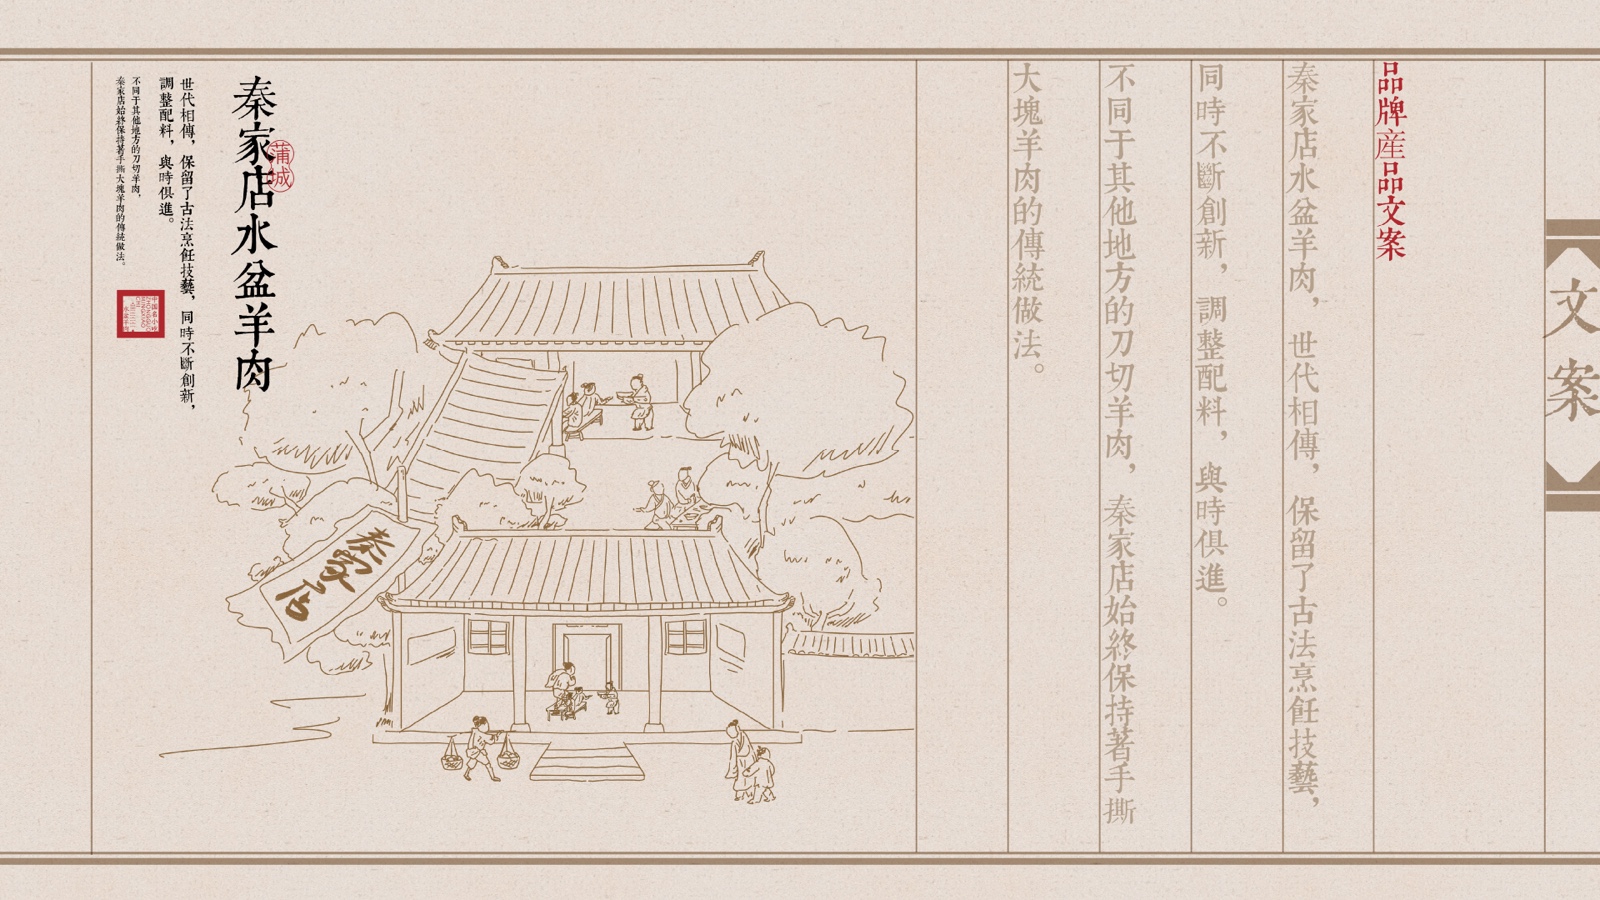 文案
品牌産品文案
秦家店水盆羊肉，世代相傳，保留了古法烹飪技藝，
同時不斷創新，調整配料，與時俱進。
不同于其他地方的刀切羊肉，秦家店始終保持著手撕
大塊羊肉的傳統做法。
蒲城
秦家店水盆羊肉
世代相傳，保留了古法烹飪技藝，同時不斷創新，
調整配料，與時俱進。
不同于其他地方的刀切羊肉，
秦家店始終保持著手撕大塊羊肉的傳統做法。
秦家店